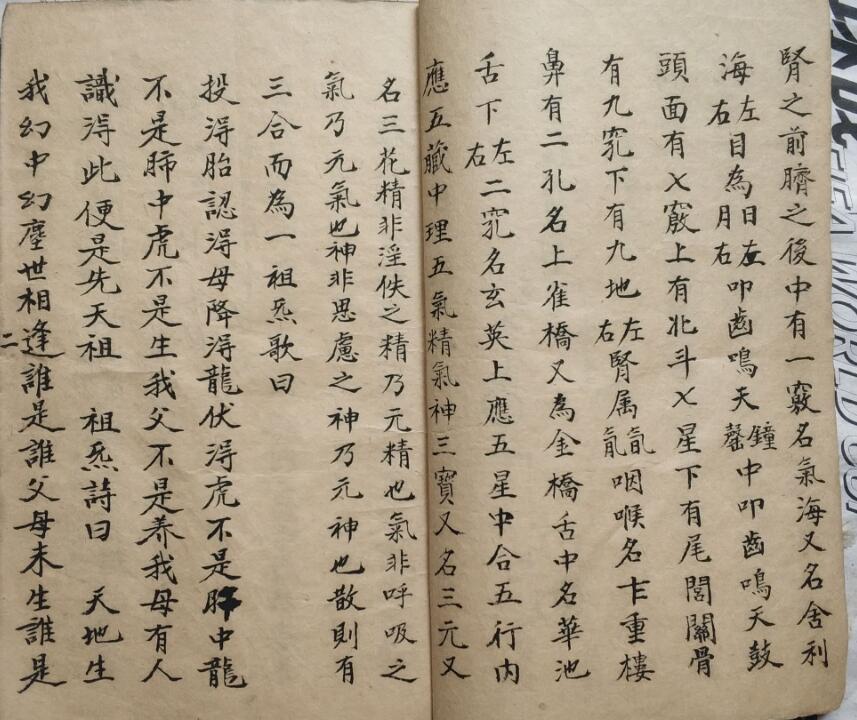 腎之前臍之後中有一竅名氣海又名舍利
海左右目為日月左右叩齒鳴天鐘罄中叩齒鳴天鼓
頭面有乂竅上有北斗乂星下有尾閭關骨
有九窍下有九地左右腎属咽喉名十重樓
鼻有二孔名上雀橋又為金橋舌中名華池
舌下左右二窍名玄英上應五星中合五行内
應五臟中理五氣精氣神三寶又名三元又
名三花精非淫佚之精乃元精也氣非呼吸之
氣乃元氣也神非思慮之神乃元神也散則有
三合而為一祖炁歌曰
投淂胎認淂母降淂龍伏淂虎不是肝中龍
不是肺中虎不是生我父不是养我母有人
識淂此便是先天祖 祖炁詩曰 天地生
我幻中幻塵世相逢誰是誰父母未生誰是
二
WORLD